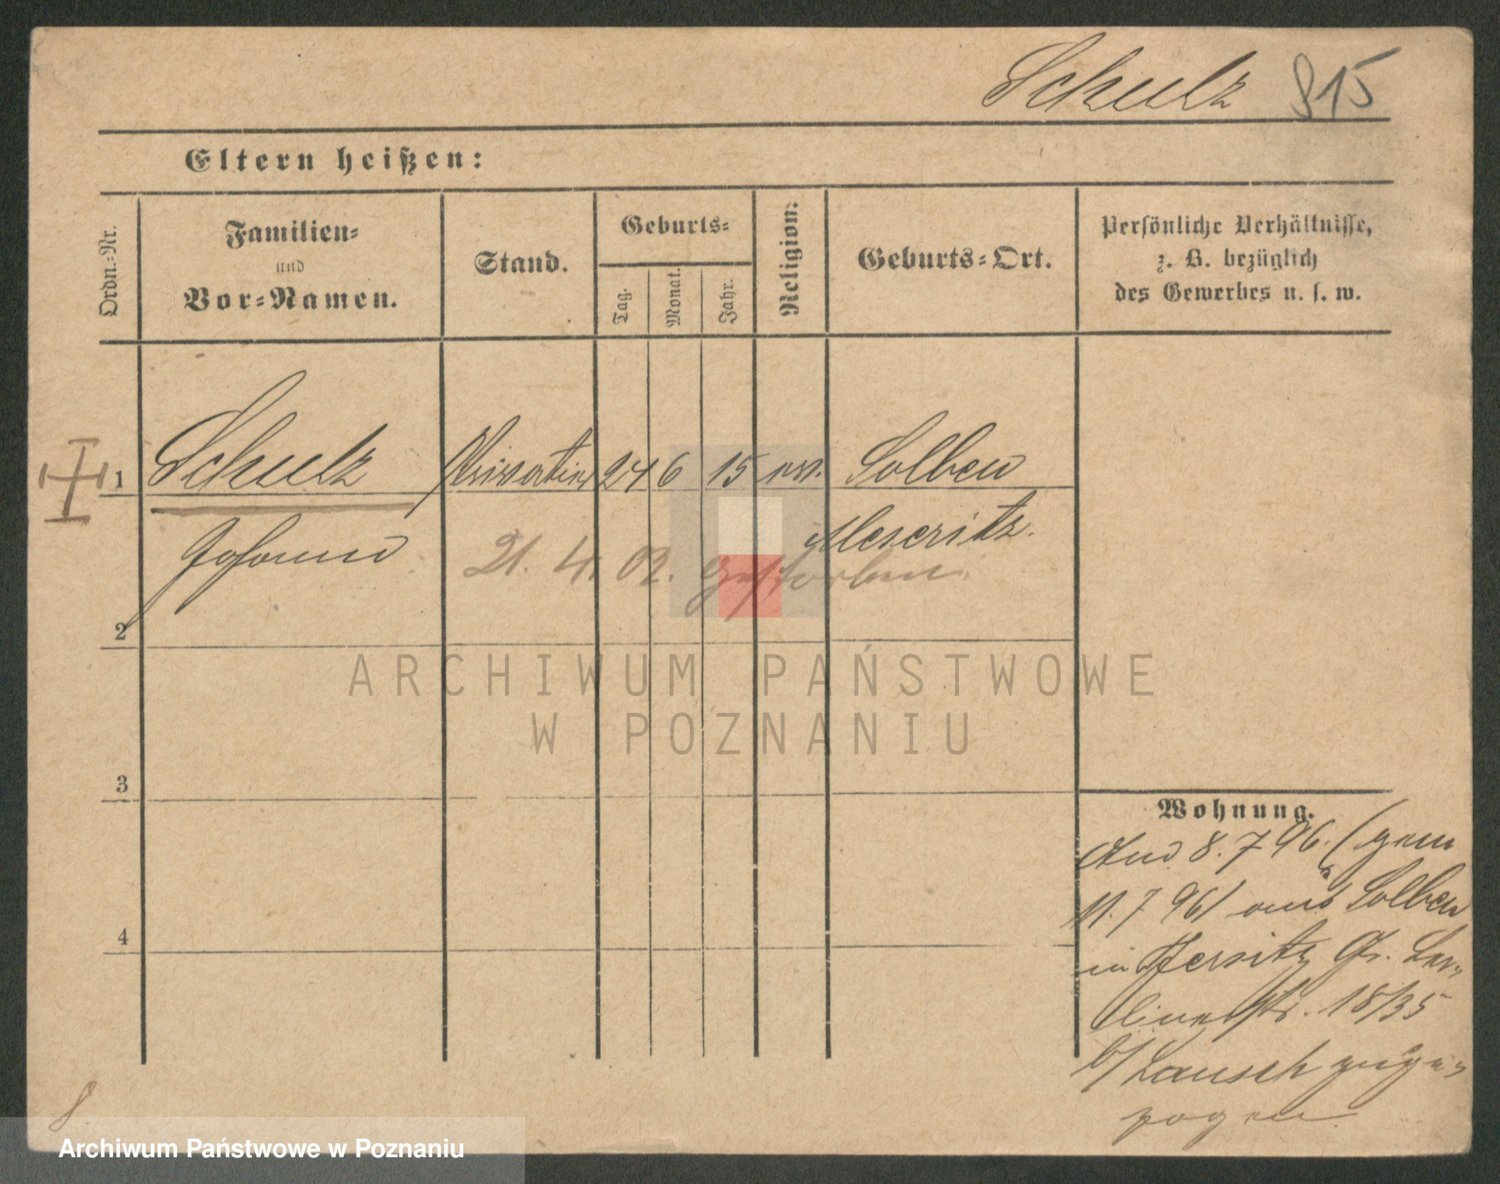 Schulz 815
Eltern heißen:
Ordn.-Nr.
Familien-
und
Vor-Namen.
Stand.
Geburts-
Tag.
Monat.
Jahr.
Religion:
Geburts-Ort.
Persönliche Verhältnisse,
z. B. bezüglich
des Gewerbes u. s. w.
1 Schulz 24 6 15 Solben
Meseritz.
Johann
21. 4. 02. gestorben.
2
3
4
Wohnung.
And 8. 7 96. (gem
11. 7 96) aus Solben
in Jersitz Gr. Ber-
linerstr. 18/35
b/ Lausch zuge-
zogen
8.
ARCHIWUM PAŃSTWOWE
W POZNANIU
Archiwum Państwowe w Poznaniu